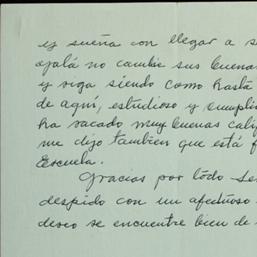 y sueña con llegar a s
ojalá no cambie sus buena
y siga siendo como hasta
de aquí, estudioso y cumpli
ha sacado muy buenas cali
me dijo tambien que está f
Escuela.
Gracias por todo Se
despido con un afectuoso
deseo se encuentre bien de